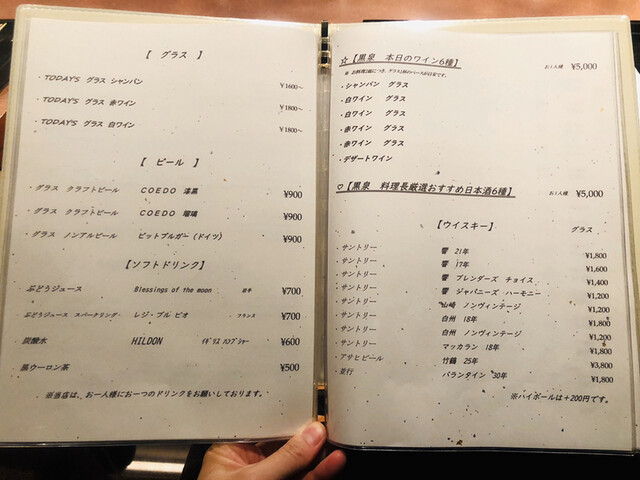 【 グラス 】
・TODAY'S グラス シャンパン ￥1600～
・TODAY'S グラス 赤ワイン ￥1800～
・TODAY'S グラス 白ワイン ￥1800～
【 ビール 】
・グラス クラフトビール COEDO 漆黒 ¥900
・グラス クラフトビール COEDO 瑠璃 ¥900
・グラス ノンアルビール ビットブルガー（ドイツ） ¥900
【ソフトドリンク】
ぶどうジュース Blessings of the moon 岩手 ¥700
ぶどうジュース スパークリング レジ・ブル ビオ フランス ¥700
炭酸水 HILDON ｲｷﾞﾘｽ ﾊﾝﾌﾟｼｬｰ ¥600
黒ウーロン茶 ¥500
※当店は、お一人様に お一つのドリンクをお願いしております。
☆【黒泉 本日のワイン6種】 お1人様 ¥5,000
※ お料理2皿につき、グラス1杯のペースが目安です。
・シャンパン グラス
・白ワイン グラス
・白ワイン グラス
・赤ワイン グラス
・赤ワイン グラス
・デザートワイン
♡【黒泉 料理長厳選おすすめ日本酒6種】 お1人様 ¥5,000
【ウイスキー】 グラス
・サントリー 響 21年 ¥1,800
・サントリー 響 17年 ¥1,600
・サントリー 響 ブレンダーズ チョイス ¥1,400
・サントリー 響 ジャパニーズ ハーモニー ¥1,200
・サントリー 山崎 ノンヴィンテージ ¥1,200
・サントリー 白州 18年 ¥1,800
・サントリー 白州 ノンヴィンテージ ¥1,200
・サントリー マッカラン 18年 ¥1,800
・アサヒビール 竹鶴 25年 ¥3,800
・並行 バランタイン 30年 ¥1,800
※ハイボールは＋200円です。